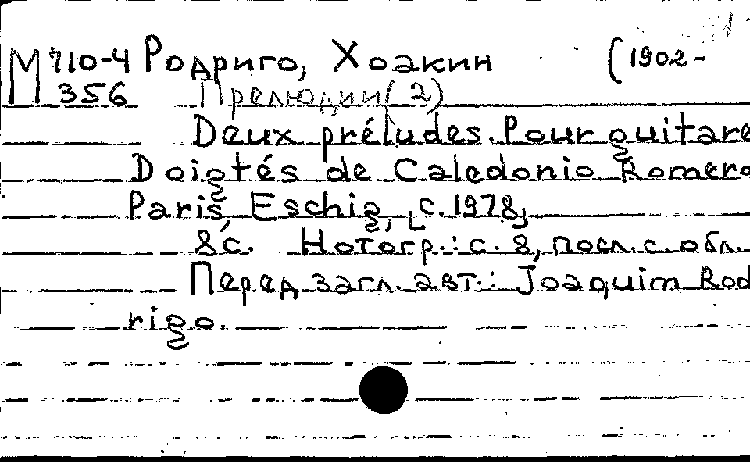 М 710-4 Родриго, Хоакин (1902-
356 Прелюдии (2)
Deux préludes. Pour guitare
Doigtés de Caledonio Romero
Paris, Eschig, [c. 1978]
8 с. Нотогр.: с. 8, посл. с. обл.
Перед загл. авт.: Joaquim Rod
rigo.